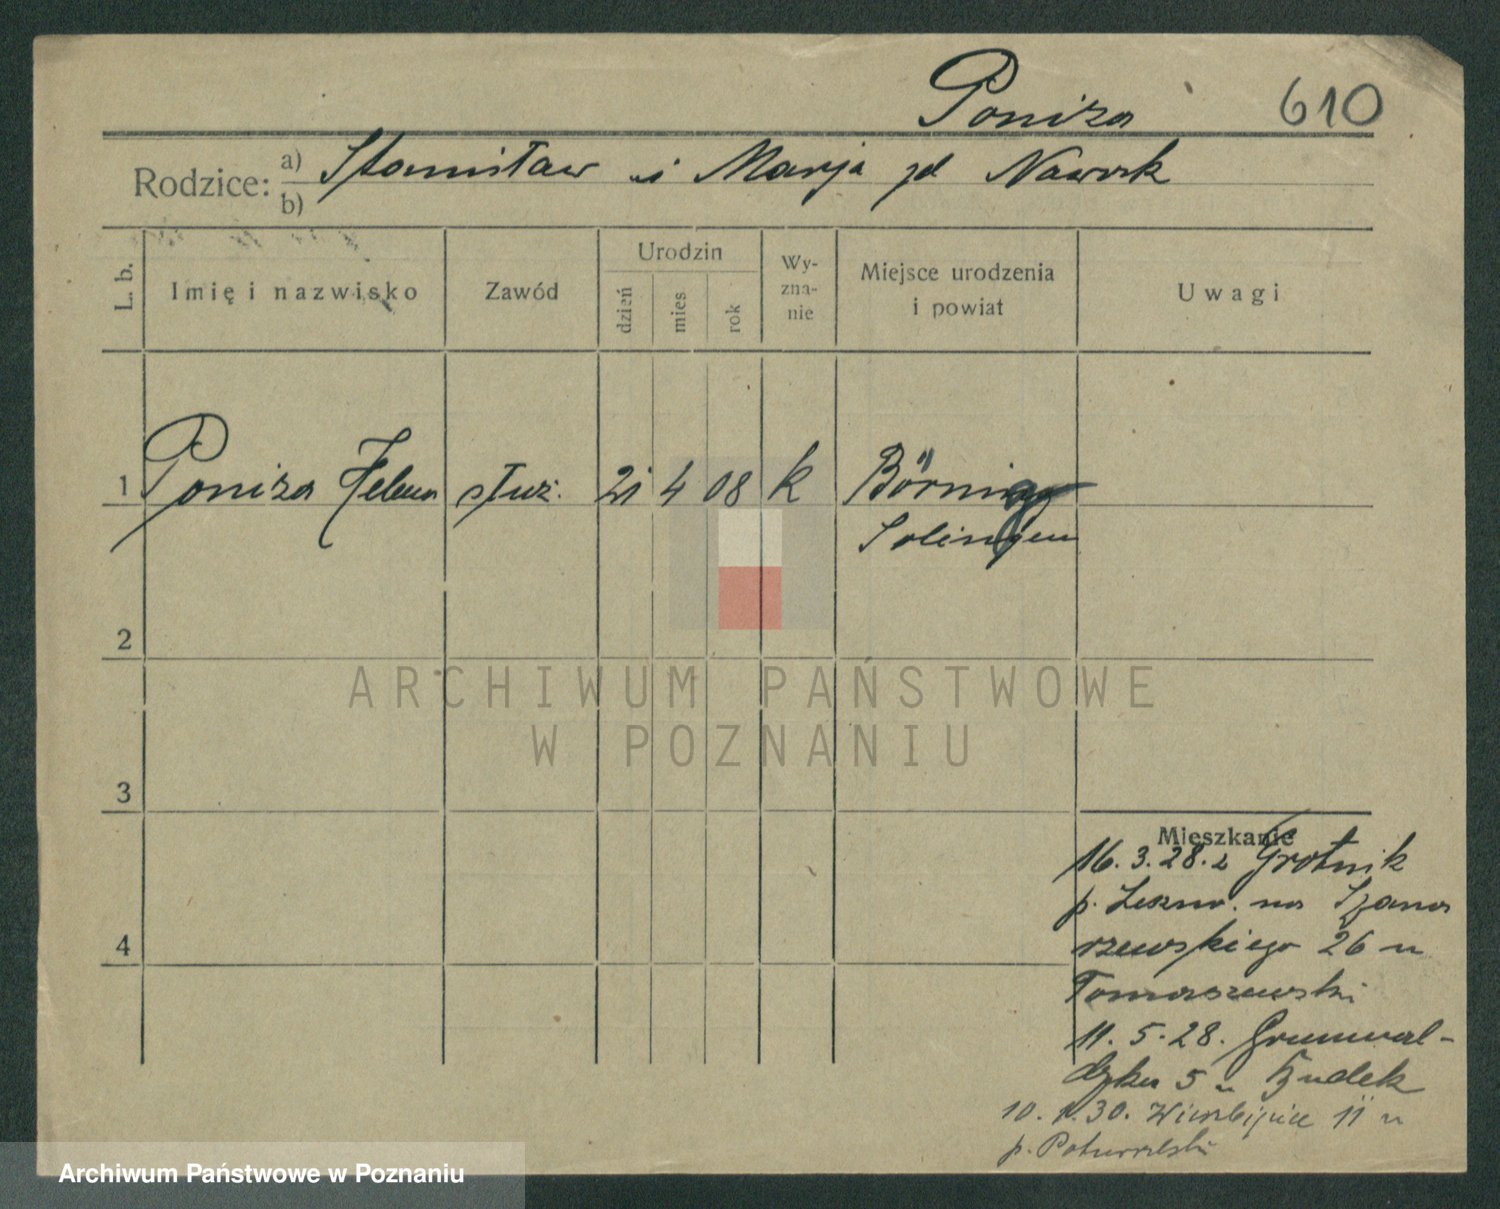 Poniza 610
Rodzice: a) Stanisław i Marja zd Nawrk
b)
L. b. Imię i nazwisko Zawód Urodzin dzień mies rok Wy-zna-nie Miejsce urodzenia i powiat Uwagi
1 Poniza Helena służ. 21 4 08 k Börnig
Solingen
2
3
4
Mieszkanie
16.3.28. z Grotnik
p. Leszno. na Szama
rzewskiego 26 u
Tomaszewski
11.5.28. Grunwal-
dzka 5 u Dudek
10. 1.30. Wierzbięcice 11 u
p.
ARCHIWUM PAŃSTWOWE
W POZNANIU
Archiwum Państwowe w Poznaniu